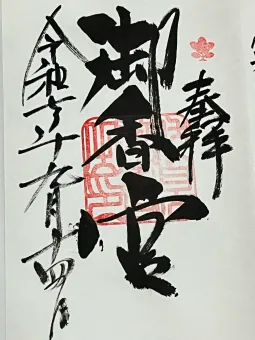 奉拝
御香宮
令和六年九月十四日